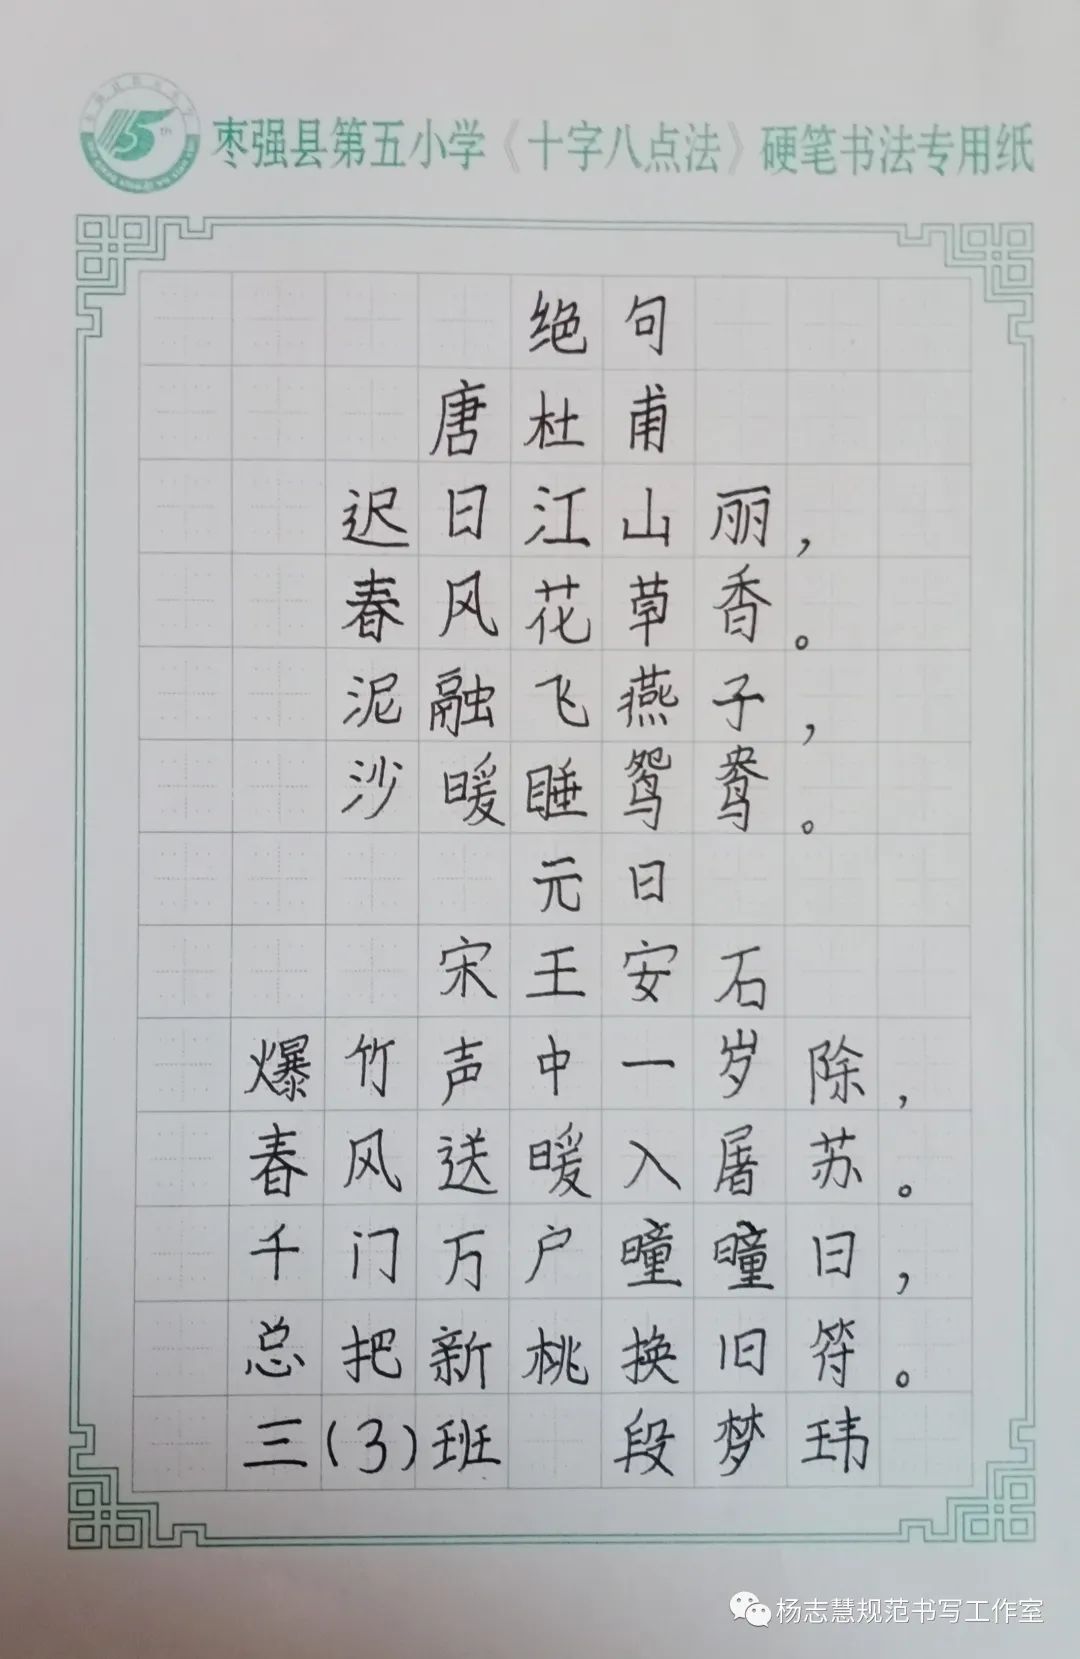 枣强县第五小学《十字八点法》硬笔书法专用纸
绝句
唐杜甫
迟日江山丽，
春风花草香。
泥融飞燕子，
沙暖睡鸳鸯。
元日
宋王安石
爆竹声中一岁除，
春风送暖入屠苏。
千门万户曈曈日，
总把新桃换旧符。
三(3)班 段梦玮
杨志慧规范书写工作室